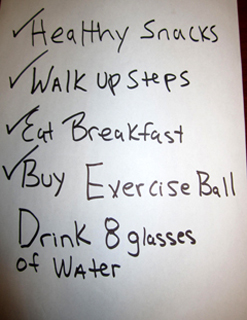 ✓Healthy Snacks
✓Walk up steps
✓Eat Breakfast
✓Buy Exercise Ball
Drink 8 glasses
of Water